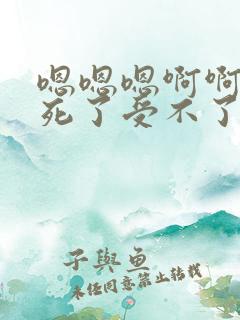 嗯嗯嗯啊啊
死了受不了
子與鱼
未经同意禁止转载